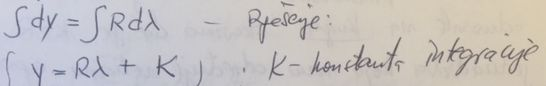 ∫dy = ∫Rdλ – Rješenje:
y = Rλ + K, K – konstanta integracije